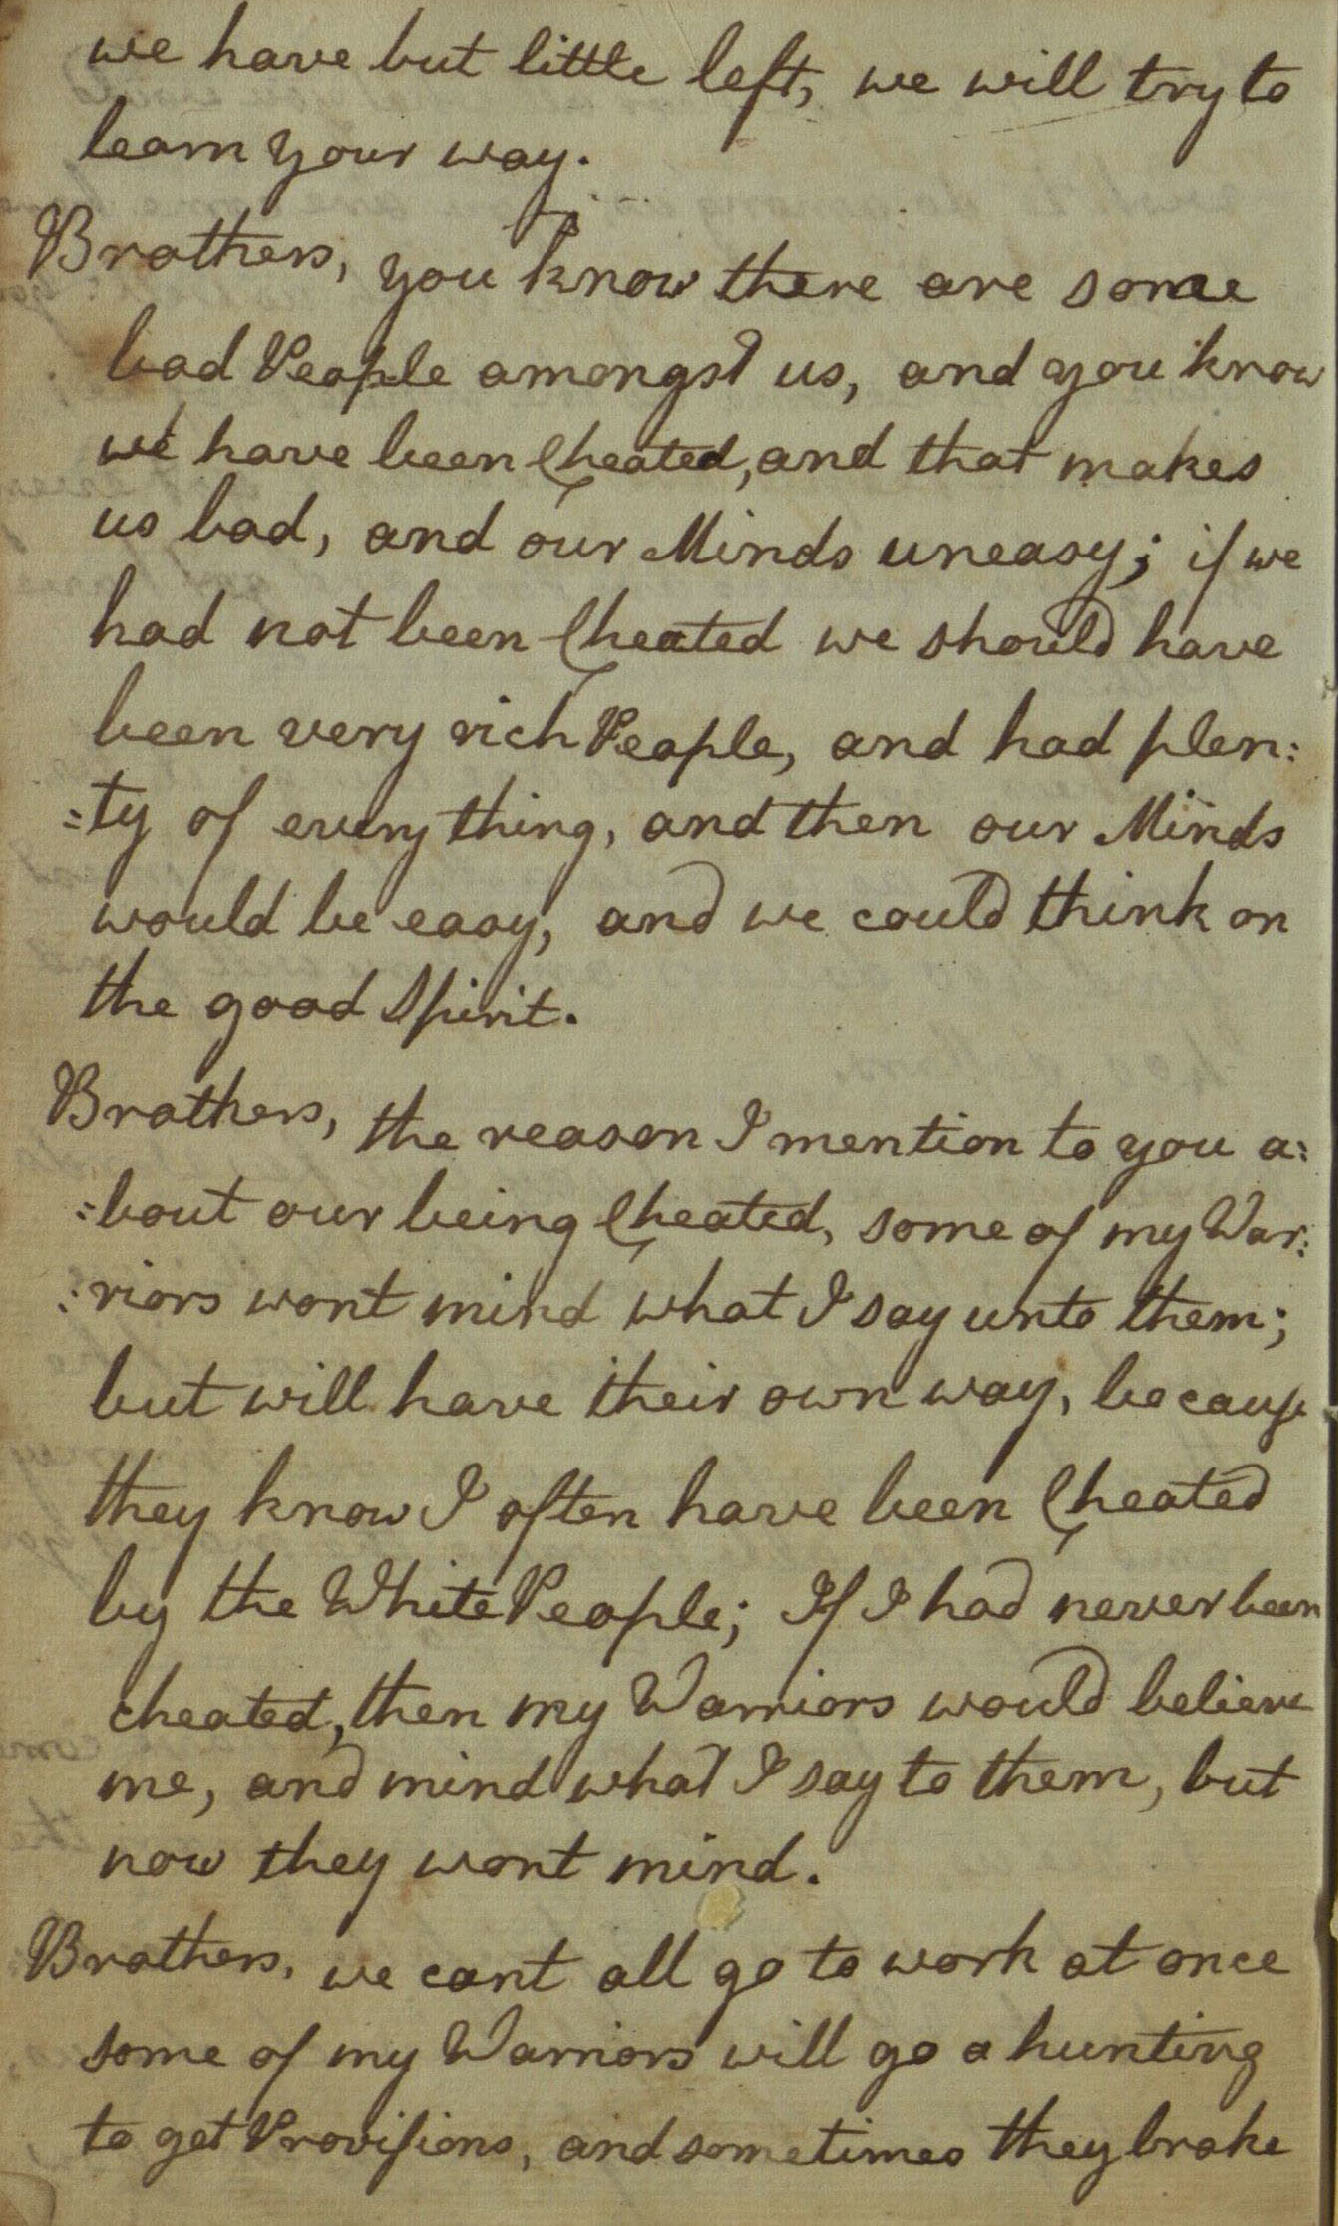 we have but little left, we will try to
learn your way.
Brothers, you know there are some
bad People amongst us, and you know
we have been Cheated, and that makes
us bad, and our Minds uneasy; if we
had not been Cheated we should have
been very rich People, and had plen:
:ty of every thing, and then our Minds
would be easy, and we could think on
the good Spirit.
Brothers, the reason I mention to you a:
:bout our being Cheated, some of my War:
:riors wont mind what I say unto them;
but will have their own way, because
they know I often have been Cheated
by the White People; If I had never been
cheated, then my Warriors would believe
me, and mind what I say to them, but
now they wont mind.
Brothers, we cant all go to work at once
some of my Warriors will go a hunting
to get Provisions, and sometimes they brake